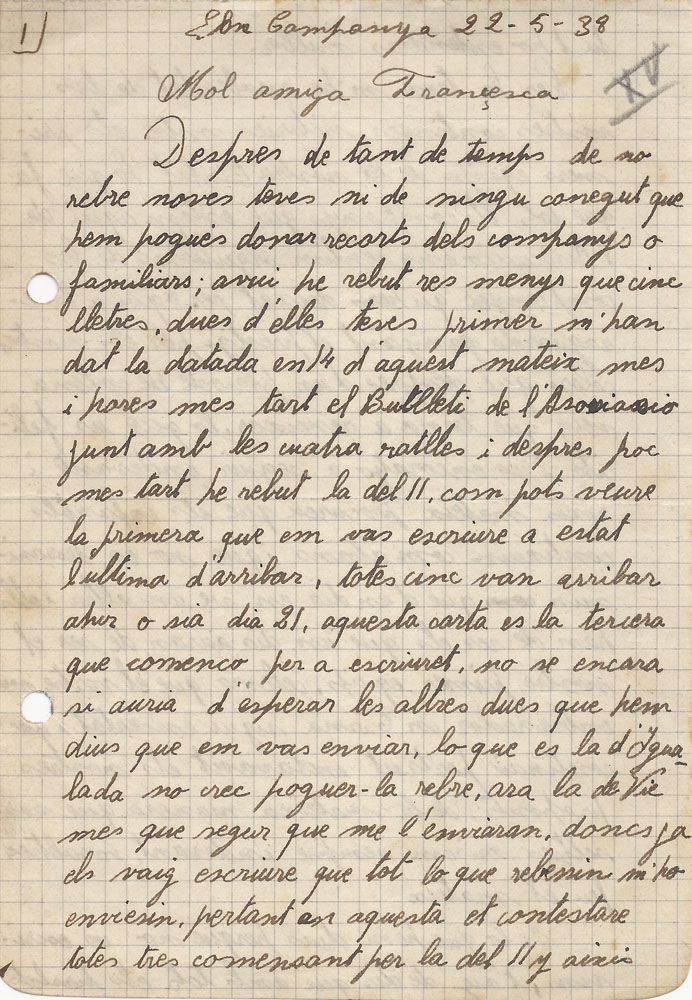 1
En Campanya 22-5-38
XV
Mol amiga Francesca
Despres de tant de temps de no
rebre noves teves ni de ningu conegut que
hem pogues donar recorts dels companys o
familiars; avui he rebut res menys que cinc
lletres, dues d'elles teves primer m'han
dat la datada en 14 d'aquest mateix mes
i hores mes tart el Butlleti de l'Asociasio
junt amb les cuatra ratlles i despres poc
mes tart he rebut la del 11, com pots veure
la primera que em vas escriure a estat
l'ultima d'arribar, totes cinc van arribar
ahir o sia dia 21, aquesta carta es la tercera
que comenco per a escriuret, no se encara
si auria d'esperar les altres dues que hem
dius que em vas enviar, lo que es la d'Igua-
lada no crec poguer-la rebre, ara la de Vic
mes que segur que me l'enviaran, doncs ja
els vaig escriure que tot lo que rebesin m'ho
enviesin, pertant en aquesta et contestare
totes tres comensant per la del 11 y aixis